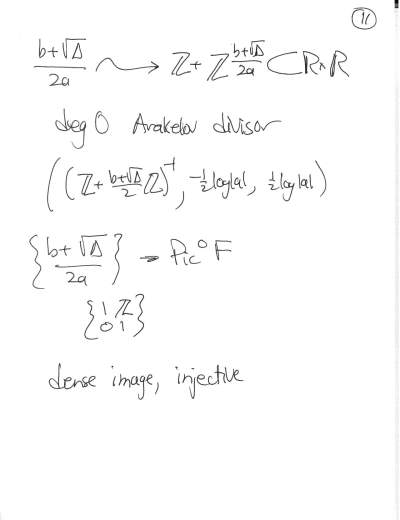 11
b+√Δ / 2a ⟿ ℤ+ ℤ b+√Δ / 2a ⊂ ℝ×ℝ
deg 0 Arakelov divisor
((ℤ+ b+√Δ / 2 ℤ)⁻¹, -½log|a|, ½log|a|)
{ b+√Δ / 2a } → Pic⁰ F
{ 1 ℤ
0 1 }
dense image, injective